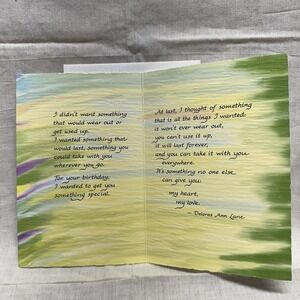 I didn't want something
that would wear out or
get used up.
I wanted something that
would last, something you
could take with you
wherever you go.
For your birthday,
I wanted to get you
something special.
At last, I thought of something
that is all the things I wanted;
it won't ever wear out,
you can't use it up,
it will last forever,
and you can take it with you
everywhere.
It's something no one else
can give you:
my heart,
my love.
— Delores Ann Lane